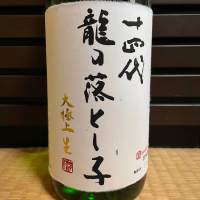 十四代
龍の落とし子
大極上生